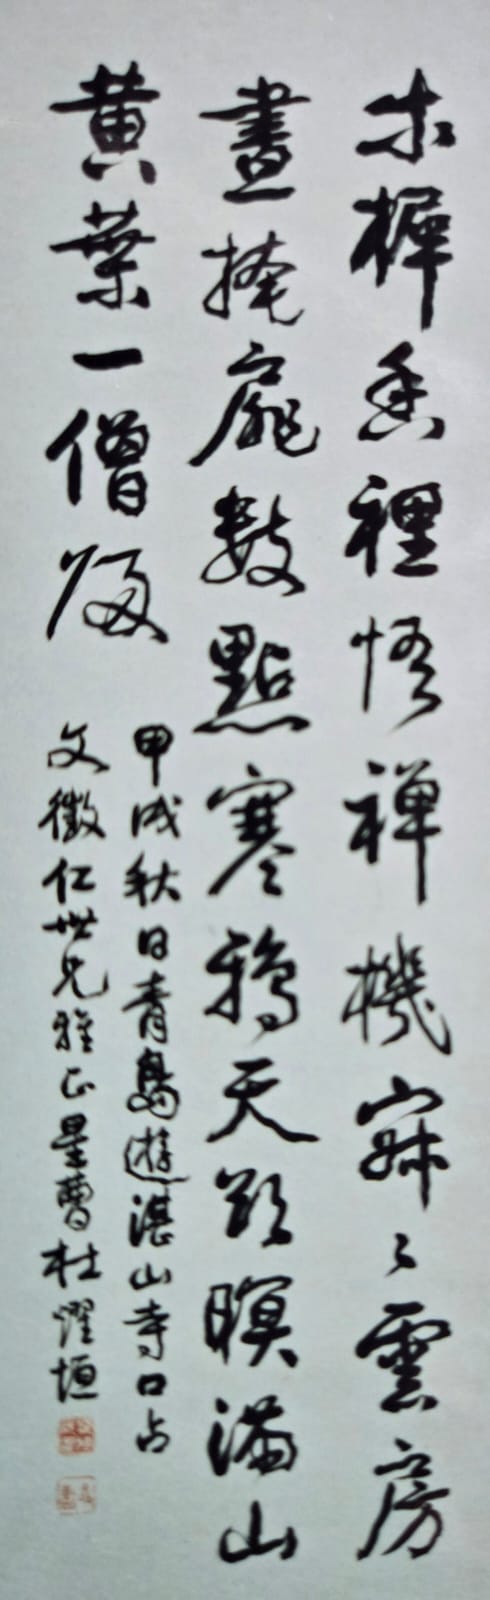 木樨香裡悟禪機寂〻雲房
晝掩扉數點寒鴉天欲暝滿山
黃葉一僧歸
甲戌秋日青島遊湛山寺口占
文徵仁世兄雅正星曹杜耀垣